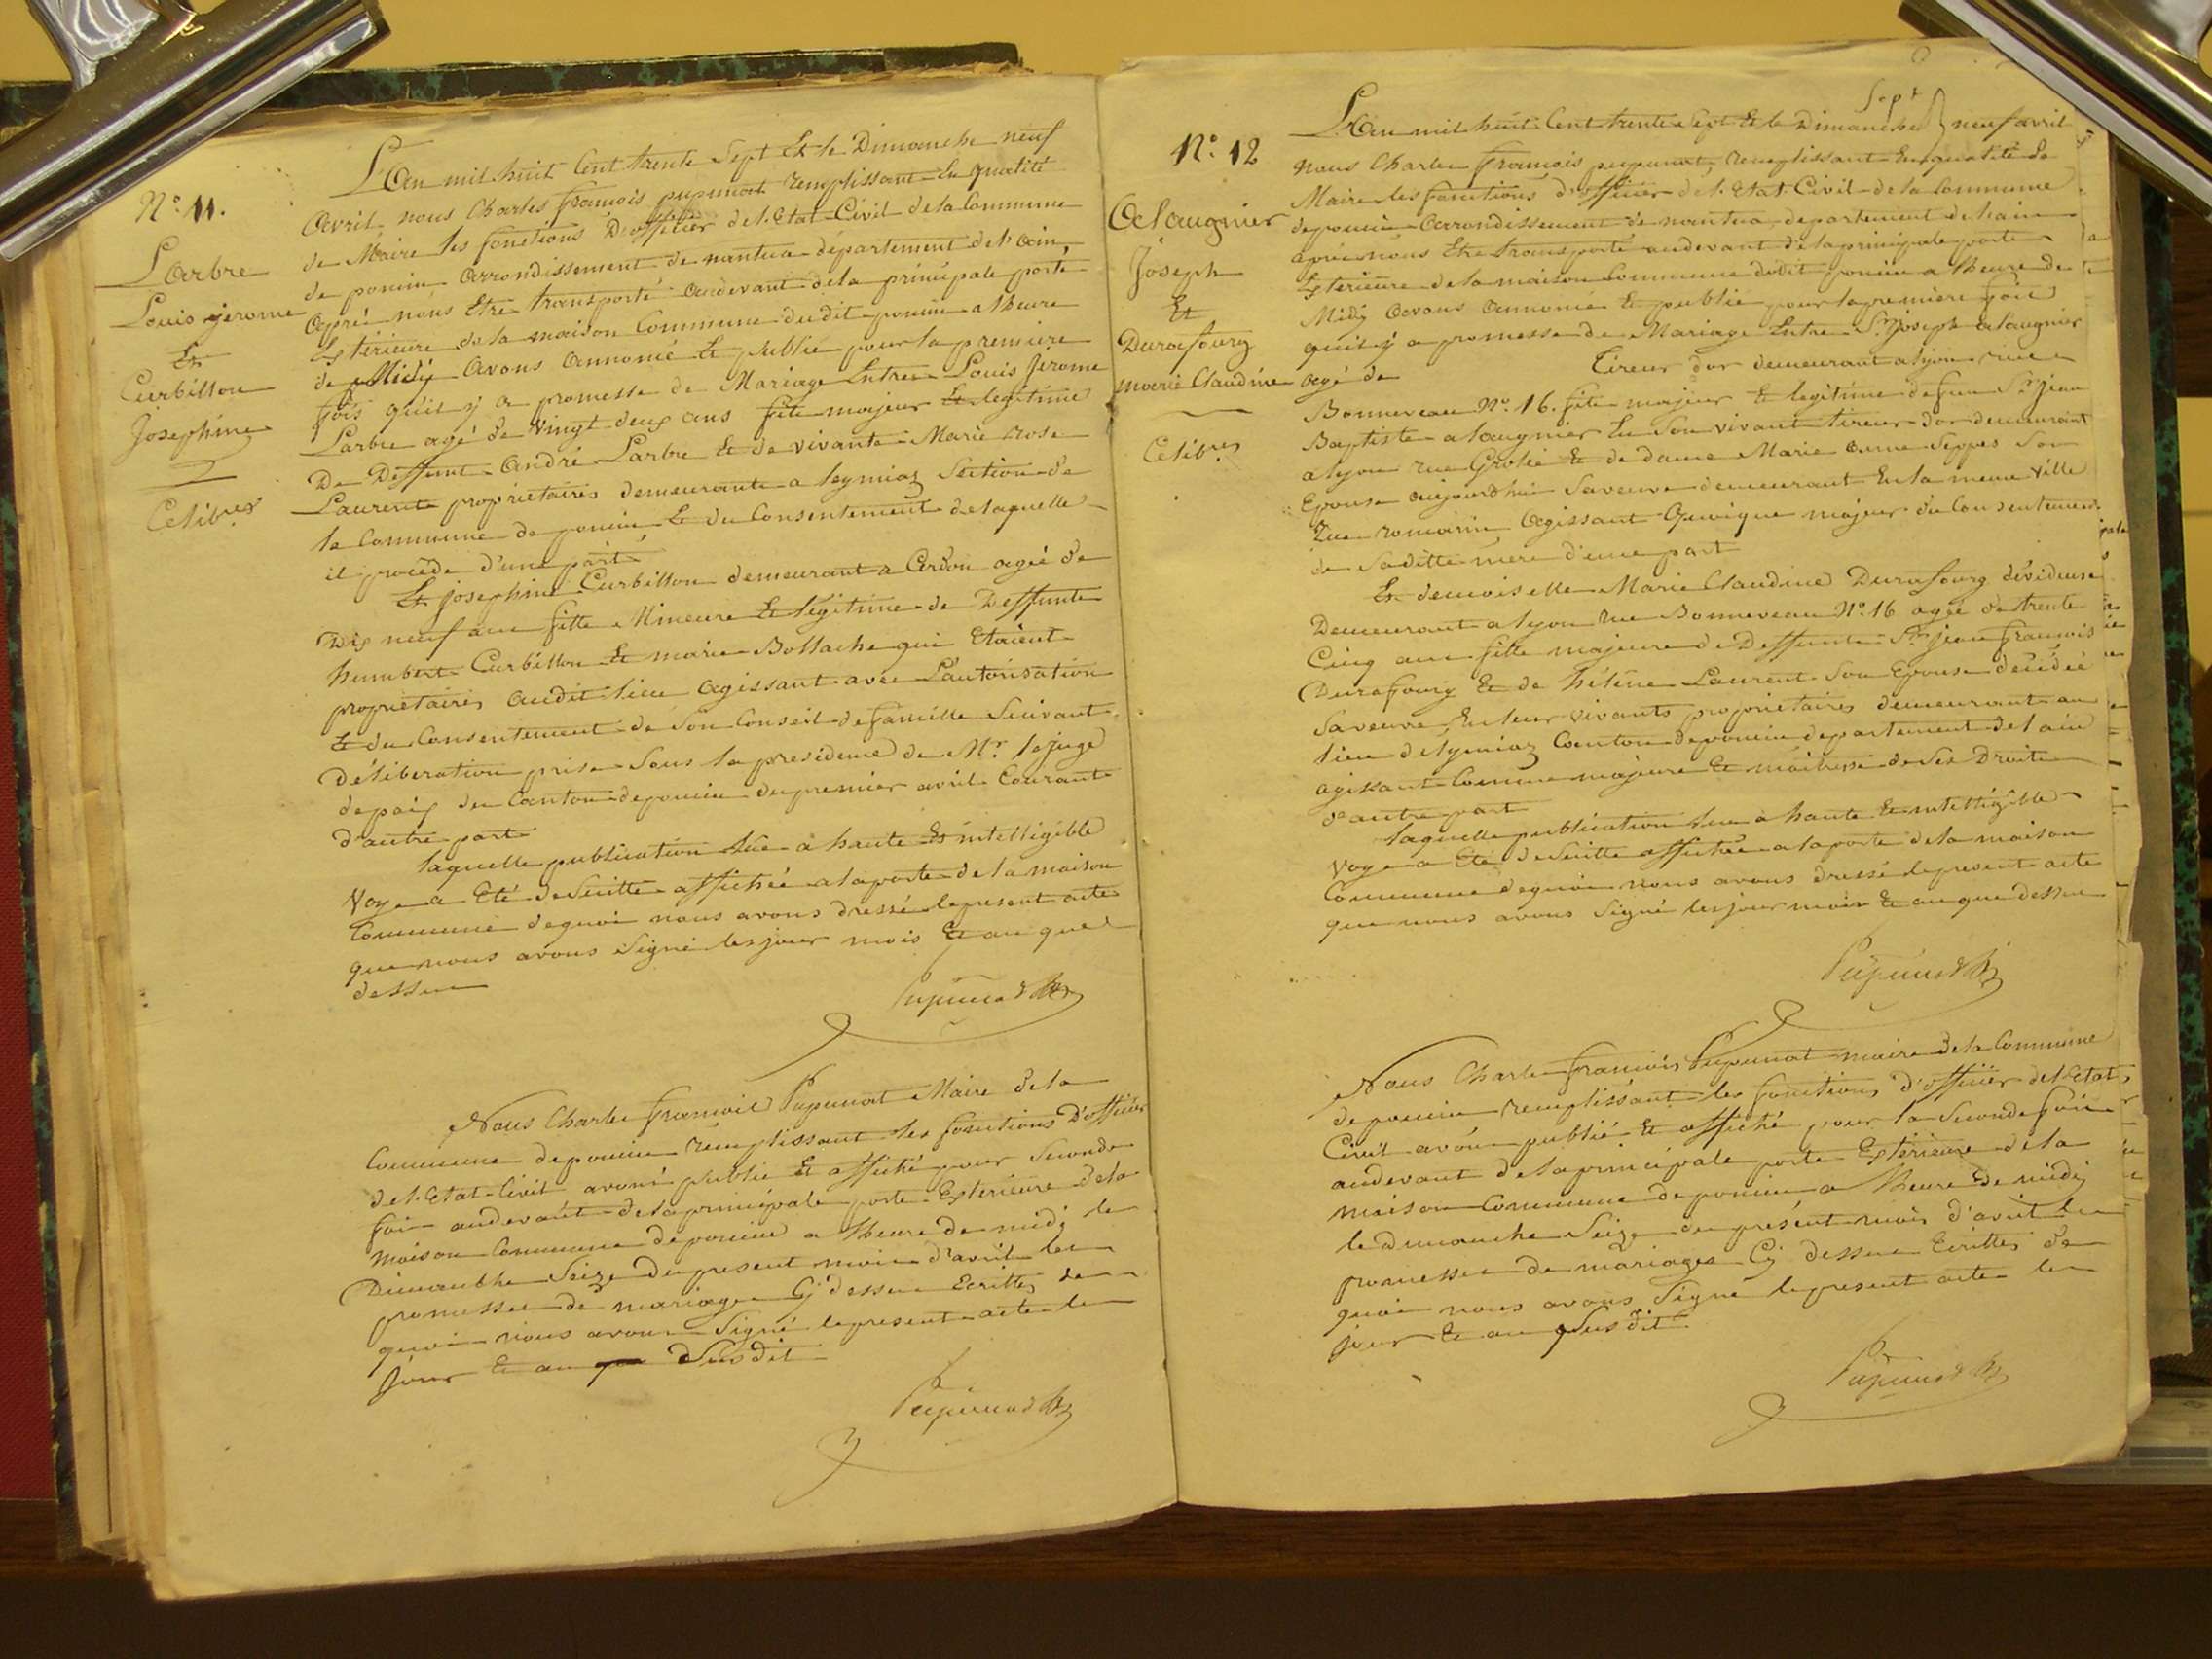 N.º 11.
Larbre
Louis jerome
Et
Curbillon
Josephine
Celib.res
L'an mil huit Cent trente Sept Et le Dimanche neuf
avril nous Charles françois pupunat remplissant En qualité
de Maire les fonctions D'officier de l'Etat-Civil de la Commune
de poncin arrondissement de nantua département de l'ain,
après nous Etre transporté audevant de la principale porte
Extérieure de la maison Commune dudit poncin a l'heure
de Midi avons annoncé Et publié pour la premiere
fois qu'il y a promesse de Mariage Entre Louis Jerome
Larbre agé de vingt deux ans fils majeur Et legitime
De Deffunt André Larbre Et de vivante Marie rose
Laurent propriétaires demeurante a leymiaz Section de
la Commune de poncin Et du Consentement de laquelle
il procède d'une part
Et josephine Curbillon demeurant a Cerdon agée de
Dix neuf ans fille Mineure Et légitime de Deffunts
humbert Curbillon Et marie Bollache qui Etaient
propriétaires audit lieu agissant avec L'autorisation
Et du Consentement de Son Conseil de famille Suivant
Déliberation prise Sous la présidence de Mr. le juge
de paix du Canton de poncin du premier avril Courant
d'autre part
laquelle publication lüe a haute Et intelligible
Voye a Eté de Suitte affichée a la porte de la maison
Commune de quoi nous avons dressé le present acte
que nous avons Signé les jour mois Et an que
dessus
Pupunat
Nous Charles francois Pupunat Maire de la
Commune de poncin remplissant les fonctions D'officier
de l'Etat-Civil avons publié Et affiché pour Seconde
fois audevant de la principale porte Exterieure de la
maison Commune de poncin a l'heure de midi le
Dimanche Seize du present mois d'avril les
promesses de mariage Cy dessus Ecrittes de
quoi nous avons Signé le present acte les
jour Et an Susdit
Pupunat
N.º 12
Alaugnier
Joseph
Et
Durafourg
marie Claudine
Celib.res
Sept
L'an mil huit Cent trente Sept Et le Dimanche neuf avril
nous Charles françois pupunat, remplissant En qualité de
Maire les fonctions d'officier de l'Etat Civil de la Commune
de poncin arrondissement de nantua, departement de l'ain
après nous Etre transporté audevant de la principale porte
Extérieure de la maison Commune dudit poncin a l'heure de
Midi avons annoncé Et publié pour la premiere fois
qu'il y a promesse de Mariage Entre Sr. joseph alaugnier
agé de Tireur d'or demeurant a lyon rue
Bonneveau N.º 16. fils majeur Et legitime de feu Sr. jean
Baptiste alaugnier En Son vivant tireur d'or demeurant
a lyon rue Grolié Et de dame Marie anne Seppes Son
Epouse aujourdhui Saveuve demeurant En la meme ville
Rue romarin agissant Quoique majeur du Consentement
de Saditte mere d'une part
Et demoiselle Marie Claudine Durafourg dévideuse
Demeurant a lyon Rue Bonneveau N.º 16 agée de trente
Cinq ans fille majeure de Deffunts Sr. jean francois
Durafourg Et de hélène Laurent Son Epouse décédée
Saveuve En leur vivants propriétaires demeurant au
lieu de leymiaz Canton de poncin departement de l'ain
agissant Comme majeure Et maitresse de Ses Droits
d'autre part
laquelle publication lue à haute Et intelligible
voye a Eté de Suitte affichée a la porte de la maison
Commune de quoi nous avons dressé le present acte
que nous avons Signé les jour mois Et an que dessus
Pupunat
Nous Charles francois Pupunat maire de la Commune
de poncin remplissant les fonctions d'officier de l'Etat
Civil avons publié Et affiché pour la Seconde fois
audevant de la principale porte Extérieure de la
maison Commune de poncin a l'heure de midi
le dimanche Seize du présent mois d'avril les
promesses de mariages Cy dessus Ecrittes de
quoi nous avons Signé le present acte les
jour Et an Susdit
Pupunat